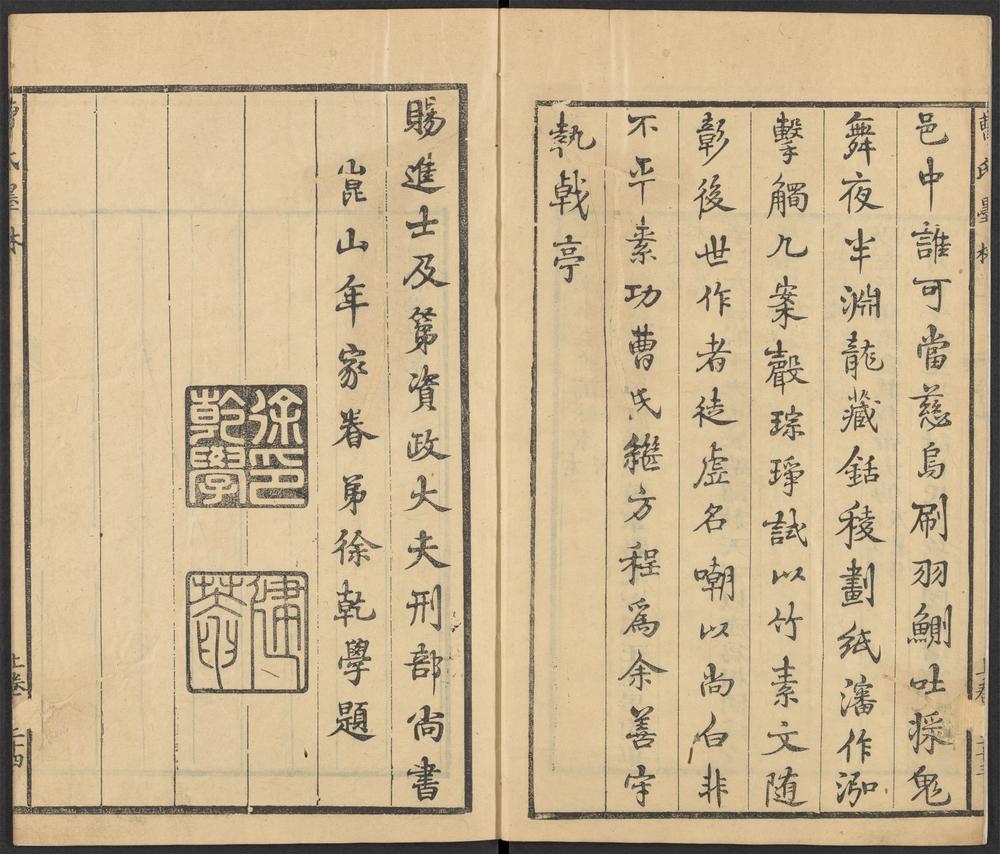 曹氏墨林
上卷 二十三
邑中誰可當慈烏刷羽鰂吐採鬼
舞夜半淵龍藏銛稜劃紙瀋作泓
擊觸几案聲琮琤試以竹素文随
彰後世作者徒虛名嘲以尚白非
不平素功曹氏繼方程爲余善守
執戟亭
賜進士及第資政大夫刑部尚書
崑山年家眷弟徐乾學題
徐乾學印
健菴
曹氏墨林
上卷 二十四